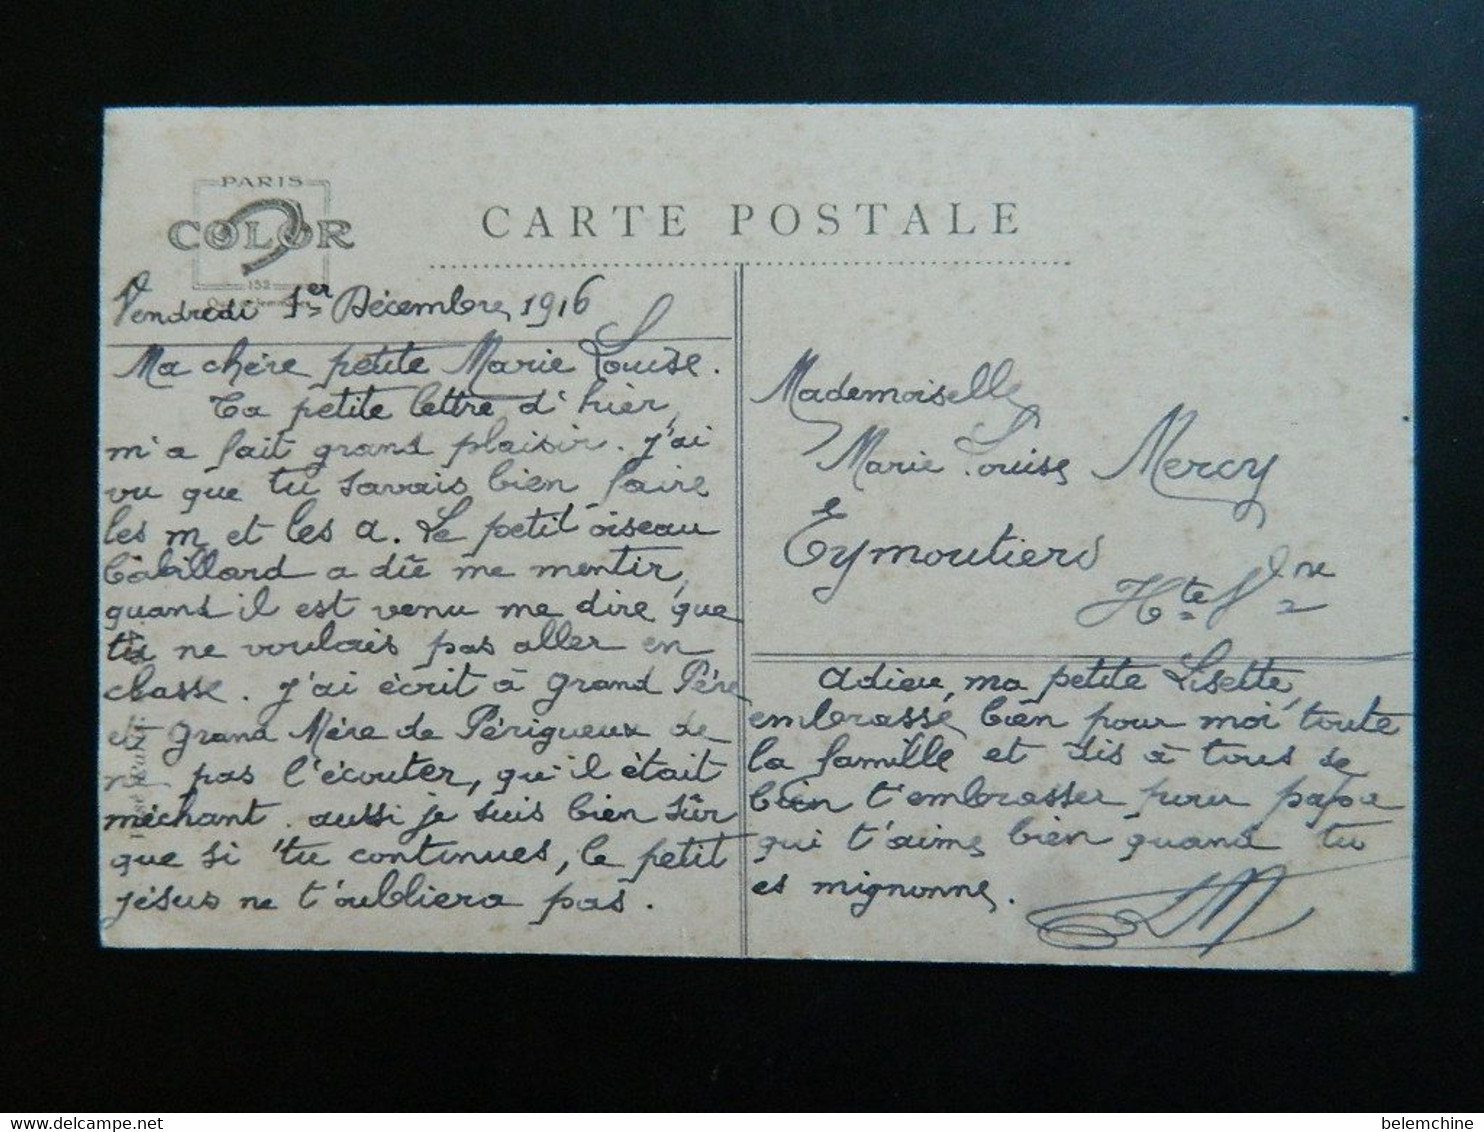 PARIS
COLOR
152
CARTE POSTALE
Vendredi 1er Décembre 1916
Ma chère petite Marie Louise.
Ta petite lettre d'hier,
m'a fait grand plaisir. J'ai
vu que tu savais bien faire
les m et les a. Le petit oiseau
babillard a dû me mentir,
quand il est venu me dire que
tu ne voulais pas aller en
classe. J'ai écrit à Grand Père
et Grand Mère de Périgueux de
ne pas l'écouter, qu'il était
méchant. aussi je suis bien sûr
que si tu continues, le petit
jésus ne t'oubliera pas.
Mademoiselle
Marie Louise Mercy
Eymoutiers
Hte Vne
Adieu, ma petite Lisette,
embrasse bien pour moi toute
la famille et dis à tous de
bien t'embrasser pour papa
qui t'aime bien quand tu
es mignonne.
belemchine